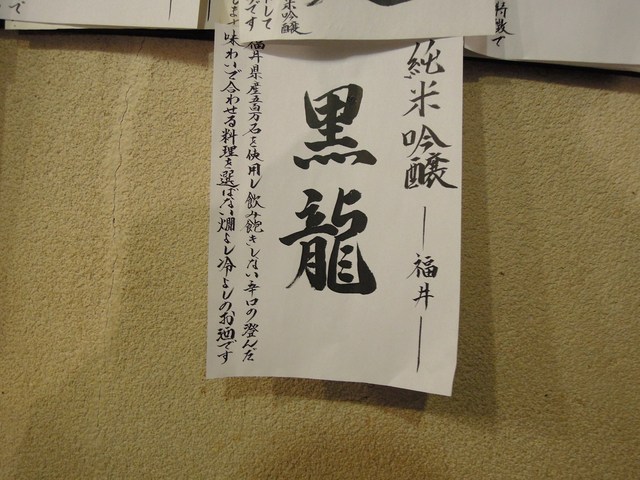 純米吟醸
福井
黒龍
福井県産五百万石を使用し飲み飽きしない辛口の澄んだ
味わいで合わせる料理を選ばない燗よし冷よしのお酒です
米吟醸
して
です
します
特徴で
で